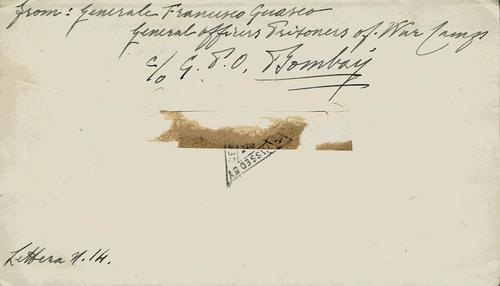 from: Generale Francesco Guasco
General Officers Prisoners of War Camp
c/o G. P. O. Bombay
PASSED BY
Lettera N. 14.